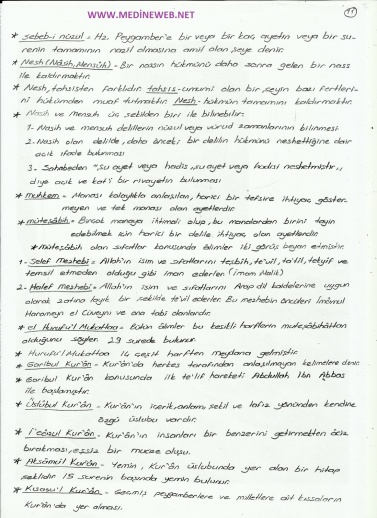 WWW.MEDİNEWEB.NET
11
* sebeb-i nüzul = Hz. Peygamber'e bir veya bir kaç ayetin veya bir su-
renin tamamının nazil olmasına amil olan şeye denir.
* Nesh (Nâsih, Mensûh) - Bir nassın hükmünü daha sonra gelen bir nass
ile kaldırmaktır.
* Nesh, tahsisten farklıdır. tahsis - umumi olan bir şeyin bazı fertleri-
ni hükümden muaf tutmaktır. Nesh - hükmün tamamını kaldırmaktır.
* Nasih ve mensuh üç şekilden biri ile bilinebilir:
1- Nasih ve mensuh delillerin nüzul veya vürud zamanlarının bilinmesi
2- Nasih olan delilde, daha önceki bir delilin hükmünü neshettiğine dair
açık ifade bulunması
3- Sahabeden "şu ayet veya hadis, şu ayet veya hadisi neshetmiştir,,
diye açık ve kat'i bir rivayetin bulunması
* muhkem - Manası kolaylıkla anlaşılan, harici bir tefsire ihtiyaç göster-
meyen ve tek manası olan ayetlerdir.
* müteşâbih - Birçok manaya ihtimali olup, bu manalardan birini tayin
edebilmek için harici bir delile ihtiyaç olan ayetlerdir
* müteşabih olan sıfatlar konusunda âlimler iki görüş beyan etmiştir.
1- Selef Mezhebi = Allah'ın isim ve sıfatlarını teşbih, te'vil, ta'til, tekyif ve
temsil etmeden olduğu gibi iman ederler (İmam Malik)
2- Halef mezhebi = Allah'ın isim ve sıfatlarını Arap dil kaidelerine uygun
olarak zatına layık bir şekilde te'vil ederler. Bu mezhebin öncüleri İmâmul
Harameyn el Cüveyni ve ona tabi olanlardır.
* el Hurufu'l Mukattaa = Bütün âlimler bu kesikli harflerin müteşabihâttan
olduğunu söyler. 29 surede bulunur.
* Hurufu'l Mukattaa 14 çeşit harften meydana gelmiştir.
* Garibul Kur'ân - Kur'ân'da herkes tarafından anlaşılmayan kelimelere denir.
* Garibul Kur'ân konusunda ilk te'lif hareketi Abdullah İbn Abbas
ile başlamıştır.
* Üslûbul Kur'ân - Kur'ân'ın içerik, anlam, şekil ve lafız yönünden kendine
özgü üslubu vardır.
* İ'câzul Kur'ân - Kur'ân'ın insanları bir benzerini getirmekten âciz
bırakması, eşsiz bir mucize oluşu.
* Aksâmul Kur'ân - Yemin, Kur'ân üslubunda yer alan bir hitap
şeklidir. 15 surenin başında yemin bulunur.
* Kısasu'l Kur'ân - Geçmiş peygamberlere ve milletlere ait kıssaların
Kur'ân'da yer alması.